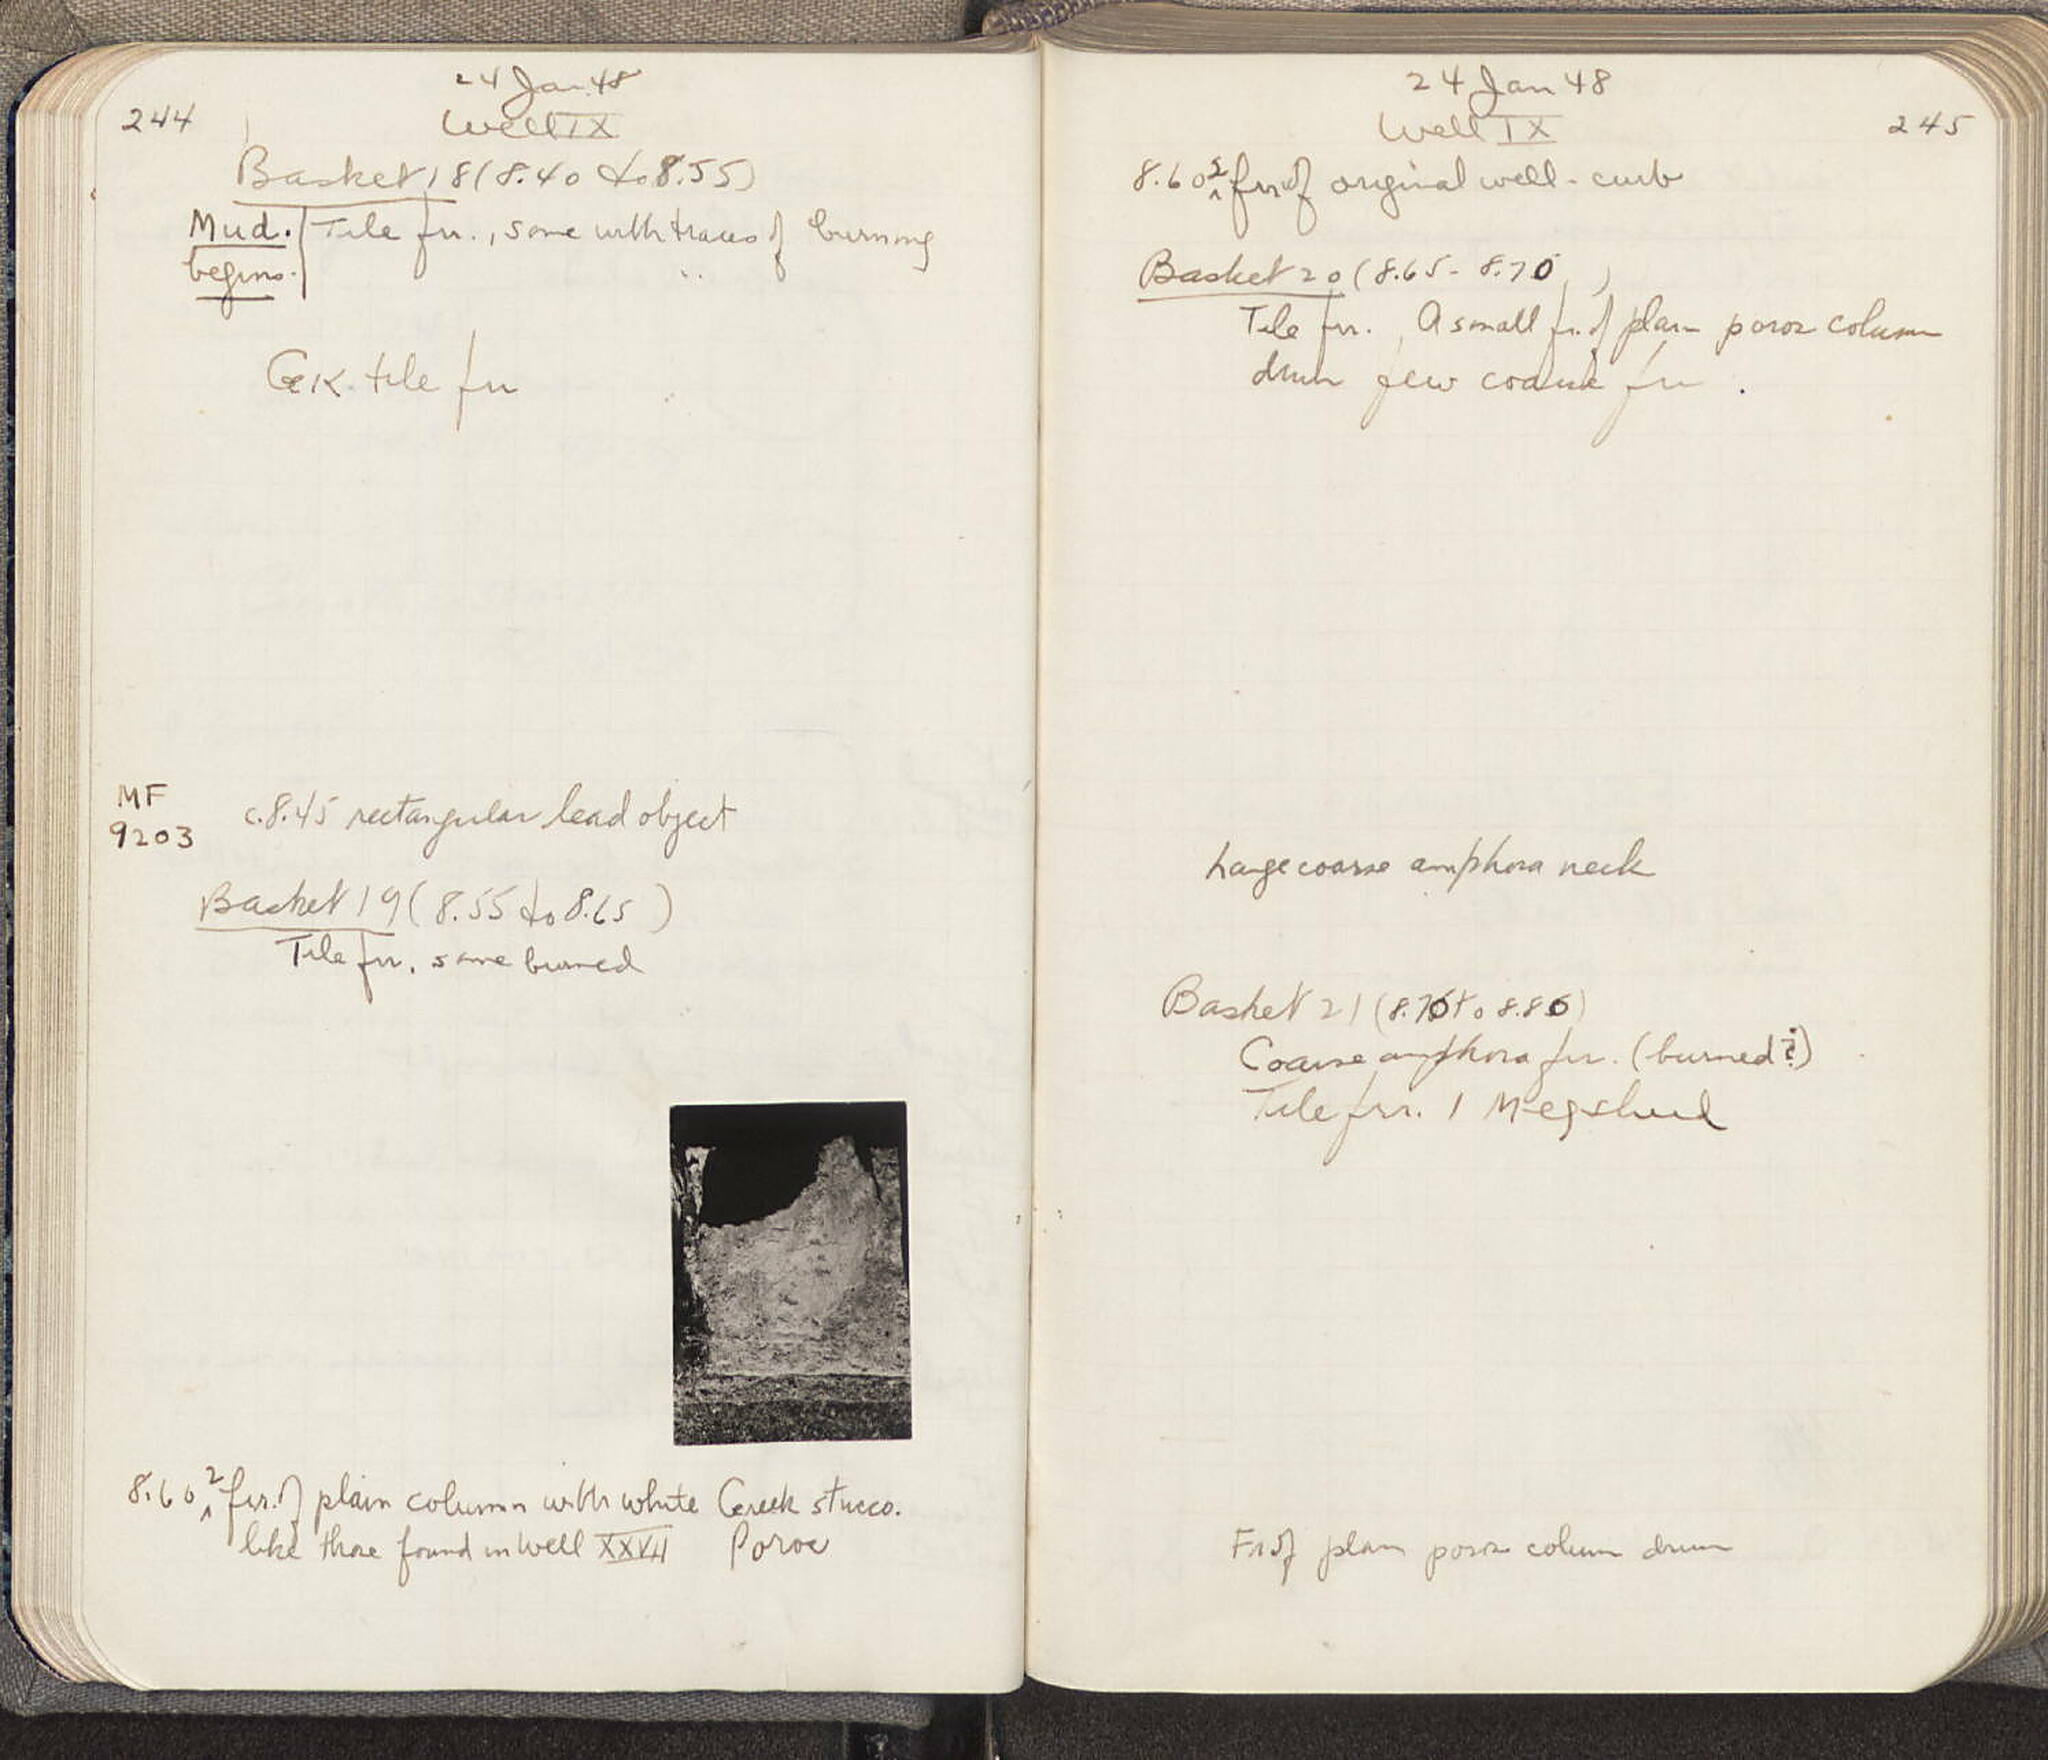 244
24 Jan 48
Well IX
Basket 18 (8.40 to 8.55)
Mud. | Tile frr., some with traces of burning
begins.
Gk. tile frr
MF
9203
c. 8.45 rectangular lead object
Basket 19 (8.55 to 8.65)
Tile frr. some burned
8.60 2 frr. of plain column with white Greek stucco.
like those found in Well XXVII Poros
24 Jan 48
Well IX
245
8.60 2 frr of original well-curb
Basket 20 (8.65 - 8.70)
Tile frr. A small fr. of plain poros column
drum few coarse frr.
Large coarse amphora neck
Basket 21 (8.70 to 8.80)
Coarse amphora frr. (burned?)
Tile frr. 1 Meg sherd
Fr of plain poros column drum